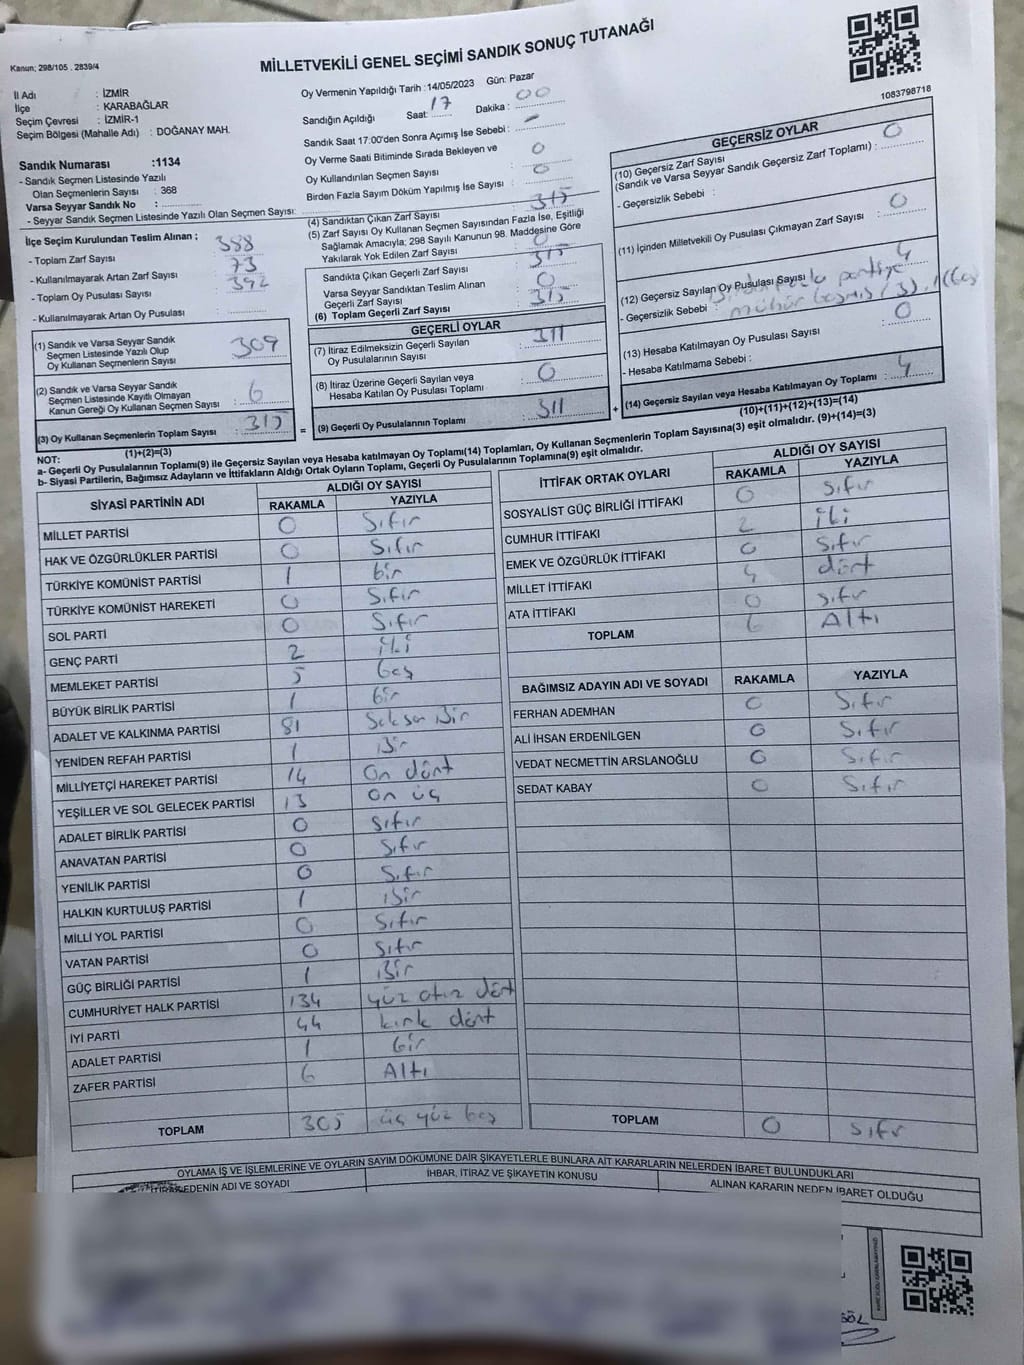 Kanun; 298/105 . 2839/4
MİLLETVEKİLİ GENEL SEÇİMİ SANDIK SONUÇ TUTANAĞI
1083798718
İl Adı : İZMİR
İlçe : KARABAĞLAR
Seçim Çevresi : İZMİR-1
Seçim Bölgesi (Mahalle Adı) : DOĞANAY MAH.
Sandık Numarası :1134
- Sandık Seçmen Listesinde Yazılı
Olan Seçmenlerin Sayısı : 368
Varsa Seyyar Sandık No :
- Seyyar Sandık Seçmen Listesinde Yazılı Olan Seçmen Sayısı:
İlçe Seçim Kurulundan Teslim Alınan ;
- Toplam Zarf Sayısı : 388
- Kullanılmayarak Artan Zarf Sayısı : 73
- Toplam Oy Pusulası Sayısı : 392
- Kullanılmayarak Artan Oy Pusulası :
(1) Sandık ve Varsa Seyyar Sandık
Seçmen Listesinde Yazılı Olup
Oy Kullanan Seçmenlerin Sayısı : 309
(2) Sandık ve Varsa Seyyar Sandık
Seçmen Listesinde Kayıtlı Olmayan
Kanun Gereği Oy Kullanan Seçmen Sayısı : 6
(3) Oy Kullanan Seçmenlerin Toplam Sayısı : 315
(1)+(2)=(3)
Oy Vermenin Yapıldığı Tarih : 14/05/2023 Gün: Pazar
Sandığın Açıldığı Saat: 17 Dakika : 00
Sandık Saat 17:00'den Sonra Açımış İse Sebebi : -
Oy Verme Saati Bitiminde Sırada Bekleyen ve
Oy Kullandırılan Seçmen Sayısı : 0
Birden Fazla Sayım Döküm Yapılmış İse Sayısı : 0
(4) Sandıktan Çıkan Zarf Sayısı : 315
(5) Zarf Sayısı Oy Kullanan Seçmen Sayısından Fazla İse, Eşitliği
Sağlamak Amacıyla; 298 Sayılı Kanunun 98. Maddesine Göre
Yakılarak Yok Edilen Zarf Sayısı : 0
Sandıkta Çıkan Geçerli Zarf Sayısı : 315
Varsa Seyyar Sandıktan Teslim Alınan
Geçerli Zarf Sayısı : 0
(6) Toplam Geçerli Zarf Sayısı : 315
GEÇERLİ OYLAR
(7) İtiraz Edilmeksizin Geçerli Sayılan
Oy Pusulalarının Sayısı : 311
(8) İtiraz Üzerine Geçerli Sayılan veya
Hesaba Katılan Oy Pusulası Toplamı : 0
(9) Geçerli Oy Pusulalarının Toplamı : 311
GEÇERSİZ OYLAR
(10) Geçersiz Zarf Sayısı
(Sandık ve Varsa Seyyar Sandık Geçersiz Zarf Toplamı) : 0
- Geçersizlik Sebebi :
(11) İçinden Milletvekili Oy Pusulası Çıkmayan Zarf Sayısı : 0
(12) Geçersiz Sayılan Oy Pusulası Sayısı : 4
- Geçersizlik Sebebi : partiye
mühür basmış (3),
(13) Hesaba Katılmayan Oy Pusulası Sayısı : 0
- Hesaba Katılmama Sebebi :
(14) Geçersiz Sayılan veya Hesaba Katılmayan Oy Toplamı : 4
(10)+(11)+(12)+(13)=(14)
NOT:
a- Geçerli Oy Pusulalarının Toplamı(9) ile Geçersiz Sayılan veya Hesaba katılmayan Oy Toplamı(14) Toplamları, Oy Kullanan Seçmenlerin Toplam Sayısına(3) eşit olmalıdır. (9)+(14)=(3)
b- Siyasi Partilerin, Bağımsız Adayların ve İttifakların Aldığı Ortak Oyların Toplamı, Geçerli Oy Pusulalarının Toplamına(9) eşit olmalıdır.
SİYASİ PARTİNİN ADI ALDIĞI OY SAYISI
RAKAMLA YAZIYLA
MİLLET PARTİSİ 0 Sıfır
HAK VE ÖZGÜRLÜKLER PARTİSİ 0 Sıfır
TÜRKİYE KOMÜNİST PARTİSİ 1 bir
TÜRKİYE KOMÜNİST HAREKETİ 0 Sıfır
SOL PARTİ 0 Sıfır
GENÇ PARTİ 2 iki
MEMLEKET PARTİSİ 5 beş
BÜYÜK BİRLİK PARTİSİ 1 bir
ADALET VE KALKINMA PARTİSİ 81 Seksen Bir
YENİDEN REFAH PARTİSİ 1 Bir
MİLLİYETÇİ HAREKET PARTİSİ 14 On dört
YEŞİLLER VE SOL GELECEK PARTİSİ 13 on üç
ADALET BİRLİK PARTİSİ 0 Sıfır
ANAVATAN PARTİSİ 0 Sıfır
YENİLİK PARTİSİ 0 Sıfır
HALKIN KURTULUŞ PARTİSİ 1 Bir
MİLLİ YOL PARTİSİ 0 Sıfır
VATAN PARTİSİ 0 Sıfır
GÜÇ BİRLİĞİ PARTİSİ 1 Bir
CUMHURİYET HALK PARTİSİ 134 yüz otuz dört
İYİ PARTİ 44 kırk dört
ADALET PARTİSİ 1 bir
ZAFER PARTİSİ 6 Altı
TOPLAM 305 üç yüz beş
İTTİFAK ORTAK OYLARI ALDIĞI OY SAYISI
RAKAMLA YAZIYLA
SOSYALİST GÜÇ BİRLİĞİ İTTİFAKI 0 Sıfır
CUMHUR İTTİFAKI 2 iki
EMEK VE ÖZGÜRLÜK İTTİFAKI 0 Sıfır
MİLLET İTTİFAKI 4 dört
ATA İTTİFAKI 0 sıfır
TOPLAM 6 Altı
BAĞIMSIZ ADAYIN ADI VE SOYADI RAKAMLA YAZIYLA
FERHAN ADEMHAN 0 Sıfır
ALİ İHSAN ERDENİLGEN 0 Sıfır
VEDAT NECMETTİN ARSLANOĞLU 0 Sıfır
SEDAT KABAY 0 Sıfır
TOPLAM 0 Sıfr
OYLAMA İŞ VE İŞLEMLERİNE VE OYLARIN SAYIM DÖKÜMÜNE DAİR ŞİKAYETLERLE BUNLARA AİT KARARLARIN NELERDEN İBARET BULUNDUKLARI
İTİRAZ EDENİN ADI VE SOYADI İHBAR, İTİRAZ VE ŞİKAYETİN KONUSU ALINAN KARARIN NEDEN İBARET OLDUĞU